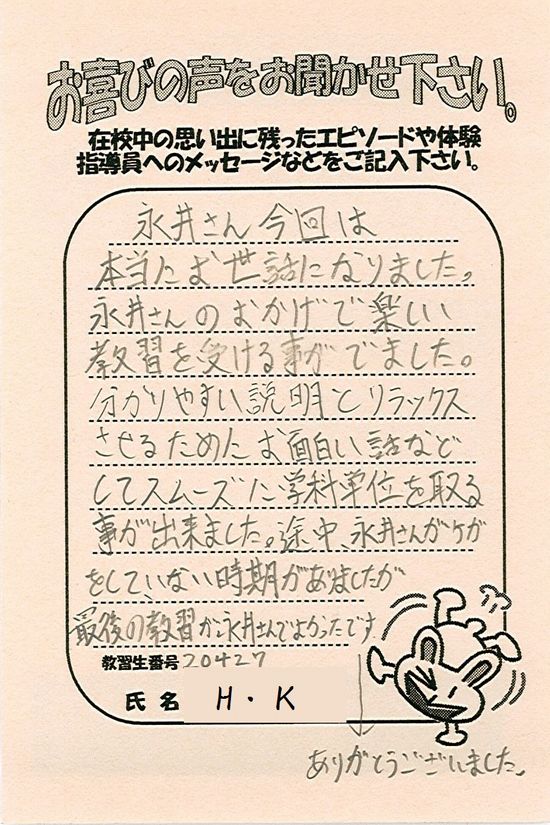 お喜びの声をお聞かせ下さい。
在校中の思い出に残ったエピソードや体験
指導員へのメッセージなどをご記入下さい。
永井さん今回は
本当にお世話になりました。
永井さんのおかげで楽しい
教習を受ける事がでました。
分かりやすい説明とリラックス
させるためにお面白い話など
してスムーズに学科単位を取る
事が出来ました。途中、永井さんがケガ
をしていない時期がありましたが
最後の教習が永井さんでよかったです
教習生番号 20427
氏名 H・K
ありがとうございました。